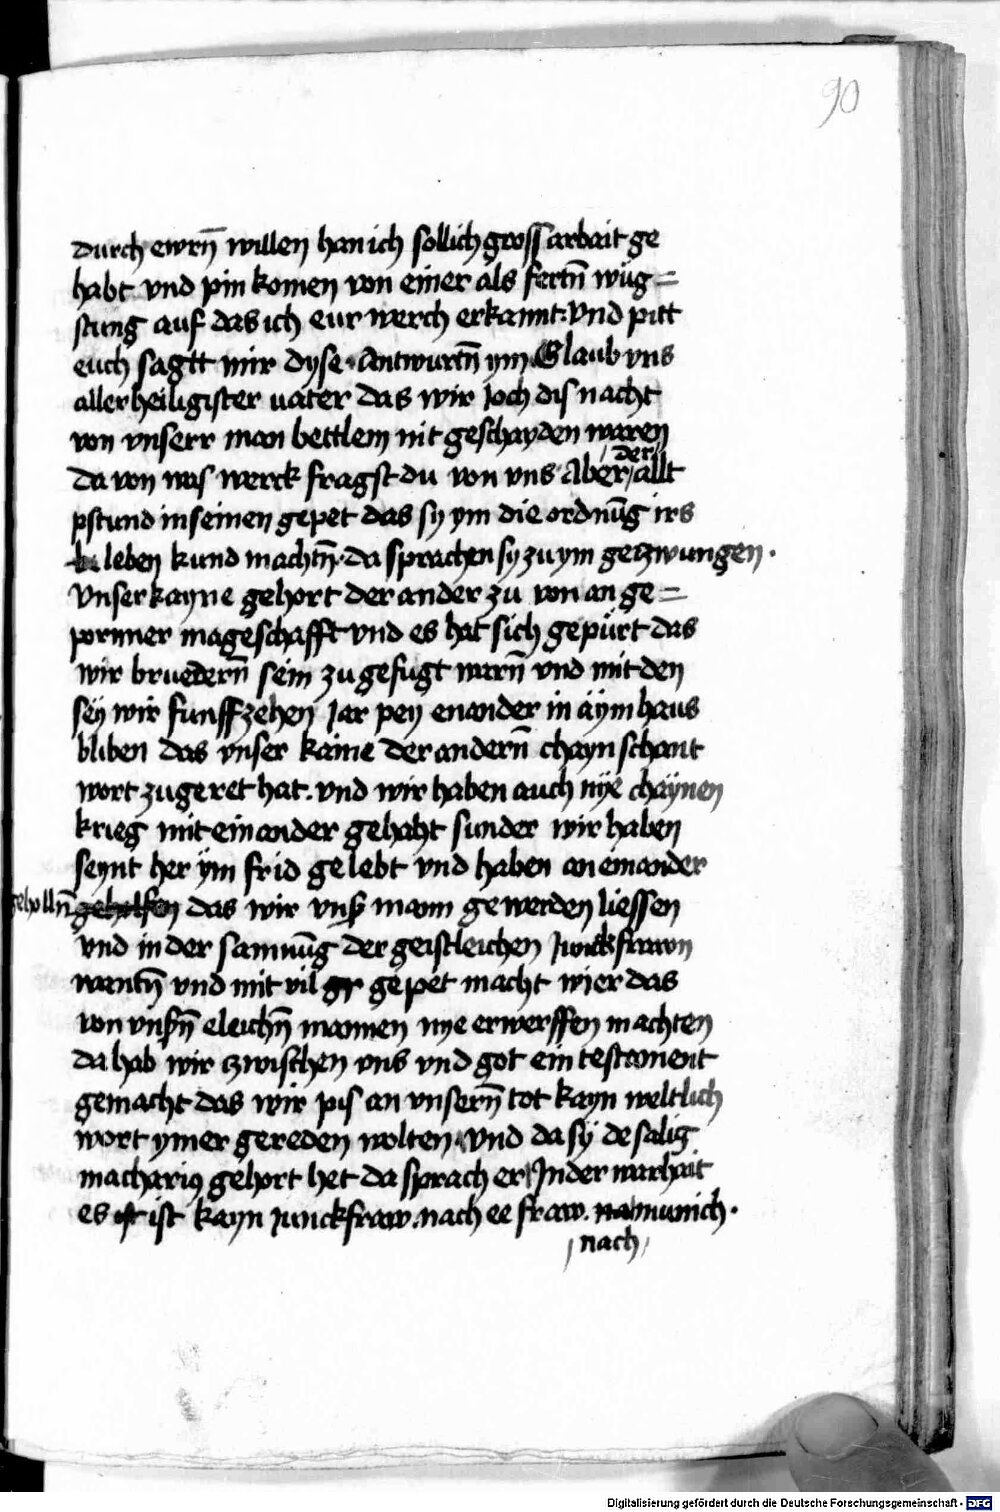 90
durch ewrn̄ willen han ich sollich gross arbait ge
habt vnd pin komen von einer als fertn̄ wüg=
stung auf das ich eur werch erkannt: vnd pitt
euch sagtt mir dyse. Antwurtn̄ ym Glaub vns
aller heiligister uater das wir Joch dis nacht
von vnserr man bettlem nit geschayden waren
da von was werck fragst du von vns Aber der allt
pstund in seinen gepet das sy ym die ordnūg irs
leben kund machtn̄. da sprachen sy zu ym getzwungen.
Vnser kayne gehort der ander zu von an ge=
pormer mageschafft vnd es hat sich gepürt das
wir bruedern̄ sein zu gefugt warn̄ vnd mit den
seÿ wir funffzehen Jar pey enander in äym haus
bliben das vnser kaine der andern̄ chayn schant
wort zu geret hat. vnd wir haben auch nÿe chaÿnen
krieg mit einander gehabt sunder wir haben
seynt her ÿm frid gelebt vnd haben an einander
geholln̄ gehelfen das wir vnsꝰ mann gewerden liessen
vnd in der samnūg der geistleichen Junckfrawn
wantn̄ vnd mit vil gr gepet macht wier das
von vnsꝰn̄ eleichn̄ mannen nye erwerffen machten
da hab wir zwischen vns vnd got ein testament
gemacht das wir pis an vnsern̄ tot kayn weltlich
wort ymer gereden wolten. vnd da sÿ de salig
macharius gehort het da sprach er Jn der warhait
es ist ist kayn Junckfraw. nach ee fraw. na munich.
nach
Digitalisierung gefördert durch die Deutsche Forschungsgemeinschaft - DFG